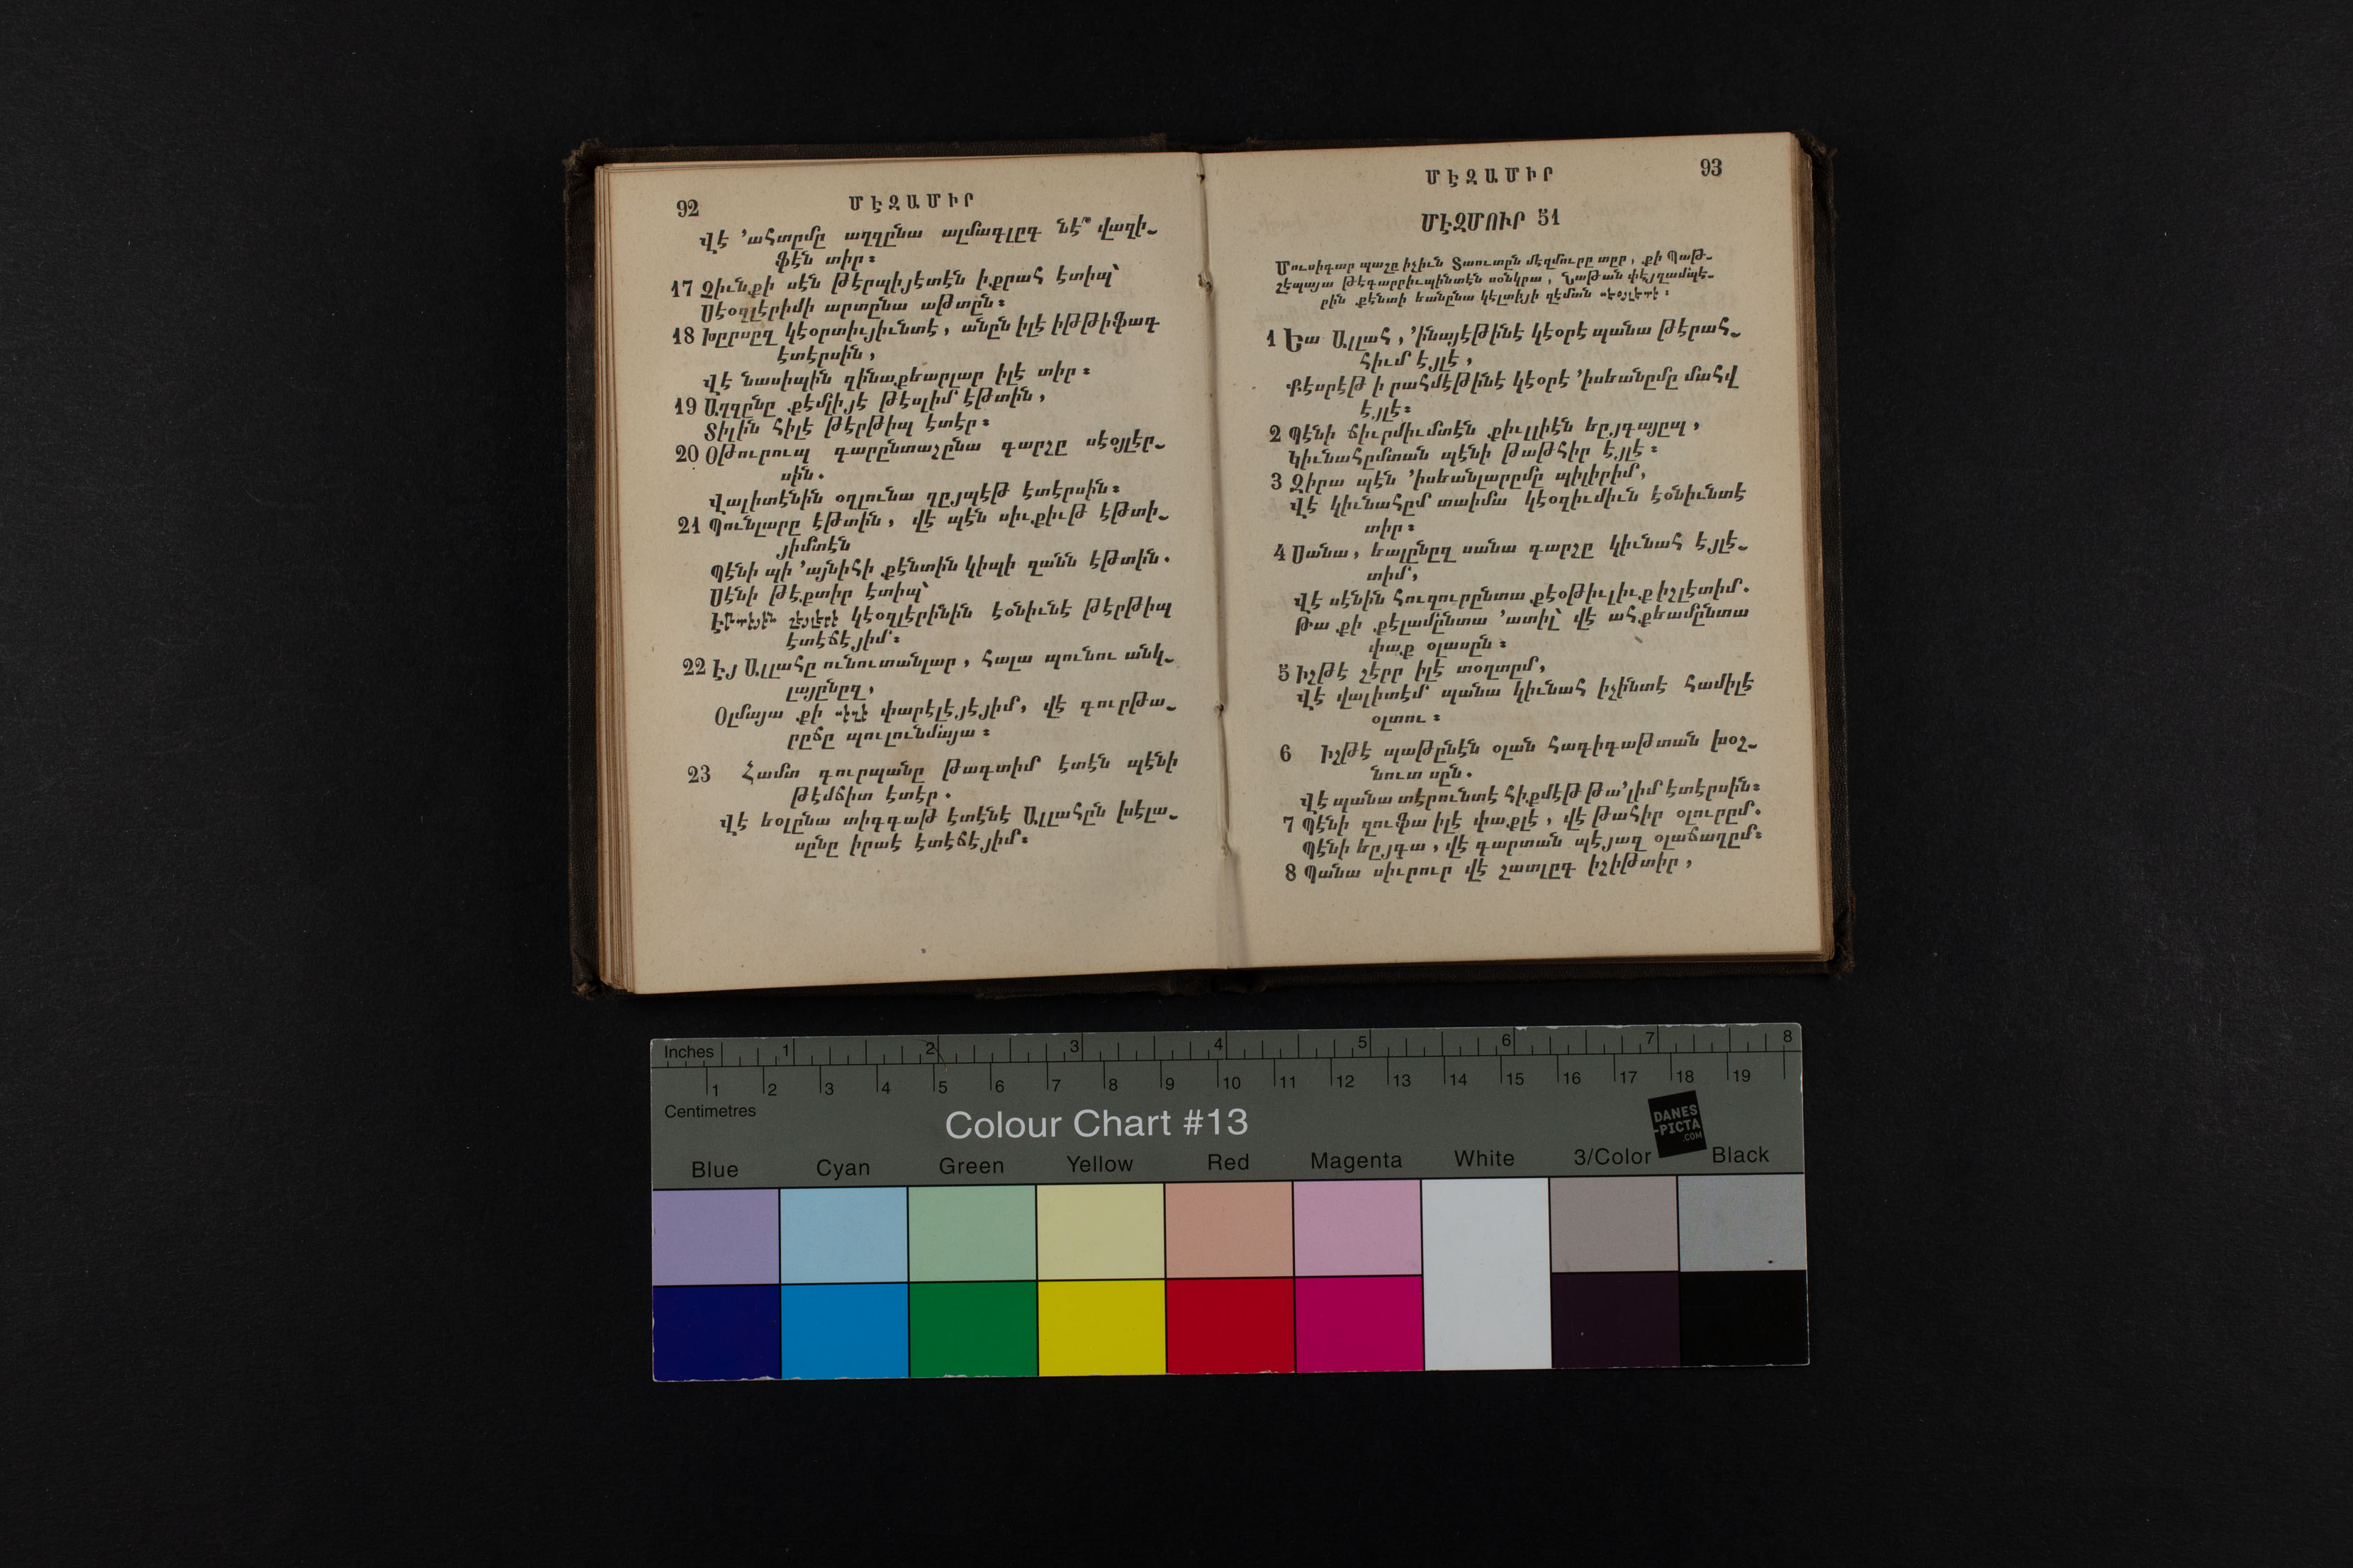 92
ՄԷԶԱՄԻՐ
վէ ՚ահտըմը աղզընա ալմագլըգ նէ՞ վազի֊
ֆէն տիր։
17 Զիւնքի սէն թէրպիյէտէն իքրահ էտիպ՝
Սէօզլէրիմի արտընա աթտըն։
18 Խըրսըզ կէօրտիւյիւնտէ, անըն իլէ իթթիֆագ
էտէրսին,
Վէ նասիպին զինաքեարլար իլէ տիր։
19 Աղզընը քէմլիյէ թէսլիմ էթտին,
Տիլին հիլէ թէրթիպ էտէր։
20 Օթուրուպ գարընտաշընա գարշը սէօյլէր֊
սին.
Վալիտէնին օղլունա ղըյպէթ էտէրսին։
21 Պունլարը էթտին, վէ պէն սիւքիւթ էթտի֊
յիմտէն
Պէնի պի ՚այնիհի քէնտին կիպի զանն էթտին.
Սէնի թէքտիր էտիպ՝
Էթտիյին շէյլէրի կէօզլէրինին էօնիւնէ թէրթիպ
էտէճէյիմ։
22 Էյ Ալլահը ունուտանլար, հալա պունու անկ֊
լայընըզ,
Օլմայա քի սիզի փարէլէյէյիմ, վէ գուրթա֊
րըճը պուլունմայա։
23 Համտ գուրպանը թագտիմ էտէն պէնի
թէմճիտ էտէր.
Վէ եօլընա տիգգաթ էտէնէ Ալլահըն խէլա֊
սընը իրաէ էտէճէյիմ։
93
ՄԷԶԱՄԻՐ
ՄԷԶՄՈՒՐ 51
Մուսիգար պաշը իչիւն Տաուտըն մէզմուրը տըր, քի Պաթ֊
շէպայա թէգարրիւպինտէն սօնկրա, Նաթան փէյղամպէ֊
րին քէնտի եանընա կէլտիյի զէման սէօյլէտի։
1 Եա Ալլահ, ՚ինայէթինէ կէօրէ պանա թէրահ֊
հիւմ էյլէ,
Քէսրէթ ի րահմէթինէ կէօրէ ՚իսեանըմը մահվ
էյլէ։
2 Պէնի ճիւրմիւմտէն քիւլլիէն եըյգայըպ,
Կիւնահըմտան պէնի թաթհիր էյլէ։
3 Զիրա պէն ՚իսեանլարըմը պիլիրիմ,
Վէ կիւնահըմ տաիմա կէօզիւմիւն էօնիւնտէ
տիր։
4 Սանա, եալընըզ սանա գարշը կիւնահ էյլէ֊
տիմ,
Վէ սէնին հուզուրընտա քէօթիւլիւք իշլէտիմ.
Թա քի քէլամընտա ՚ատիլ՝ վէ ահքեամընտա
փաք օլասըն։
5 Իշթէ շէրր իլէ տօղտըմ,
Վէ վալիտէմ պանա կիւնահ իչինտէ համիլէ
օլտու։
6 Իշթէ պաթընէն օլան հագիգաթտան խօշ֊
նուտ սըն.
Վէ պանա տէրունտէ հիքմէթ թա՚լիմ էտէրսին։
7 Պէնի զուֆա իլէ փաքլէ, վէ թահիր օլուրըմ.
Պէնի եըյգա, վէ գարտան պէյազ օլաճաղըմ։
8 Պանա սիւրուր վէ շատլըգ իշիթտիր,
Inches 1 2 3 4 5 6 7 8
1 2 3 4 5 6 7 8 9 10 11 12 13 14 15 16 17 18 19
Centimetres
Colour Chart #13
DANES
-PICTA
.COM
Blue Cyan Green Yellow Red Magenta White 3/Color Black